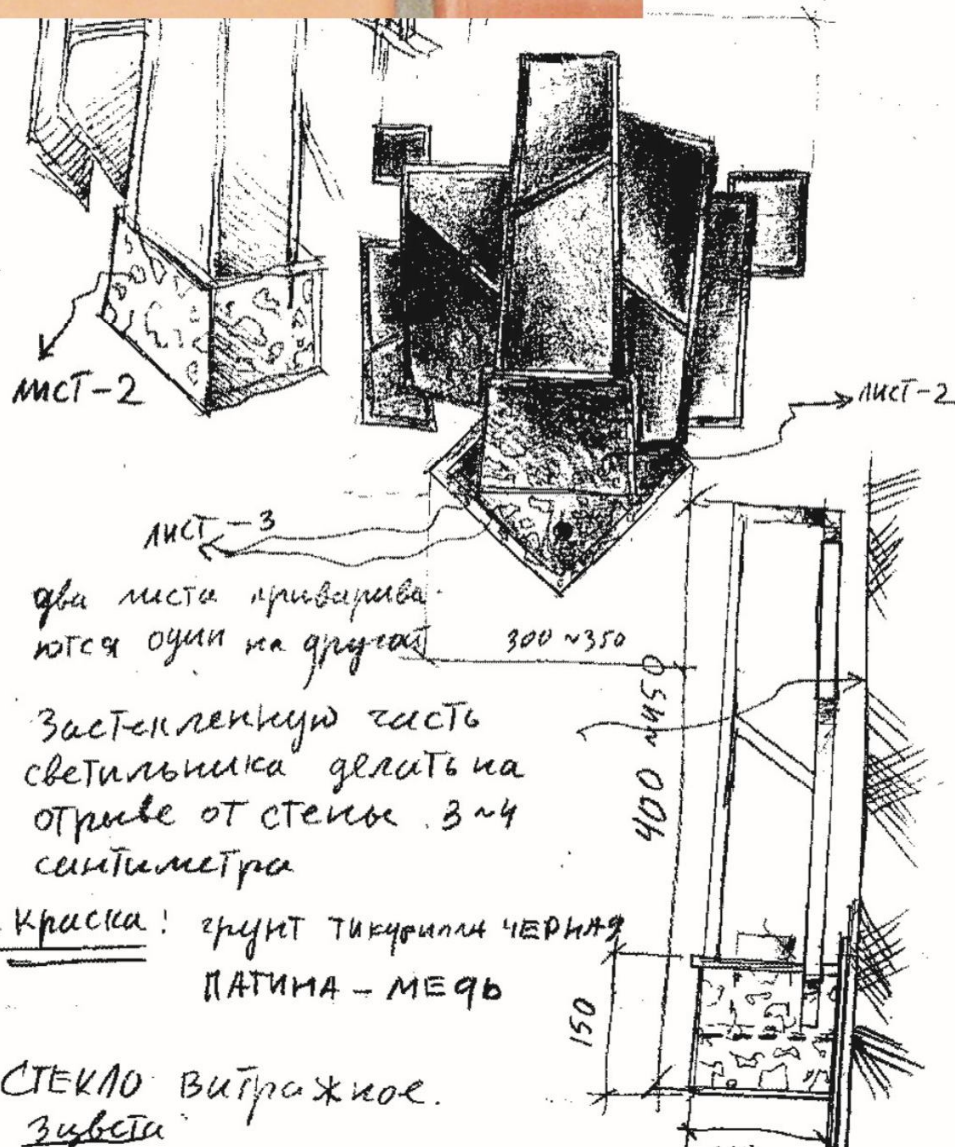 ЛИСТ-2
ЛИСТ-2
ЛИСТ-3
два листа приварива-
ются один на другой
300~350
400~450
Застекленную часть
светильника делать на
отрыве от стены 3~4
сантиметра
краска: грунт ТИКУРИЛЛА ЧЕРНАЯ
ПАТИНА - МЕДЬ
150
СТЕКЛО витражное.
3 цвета